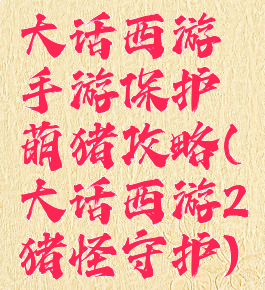 大话西游
手游保护
萌猪攻略(
大话西游2
猪怪守护)